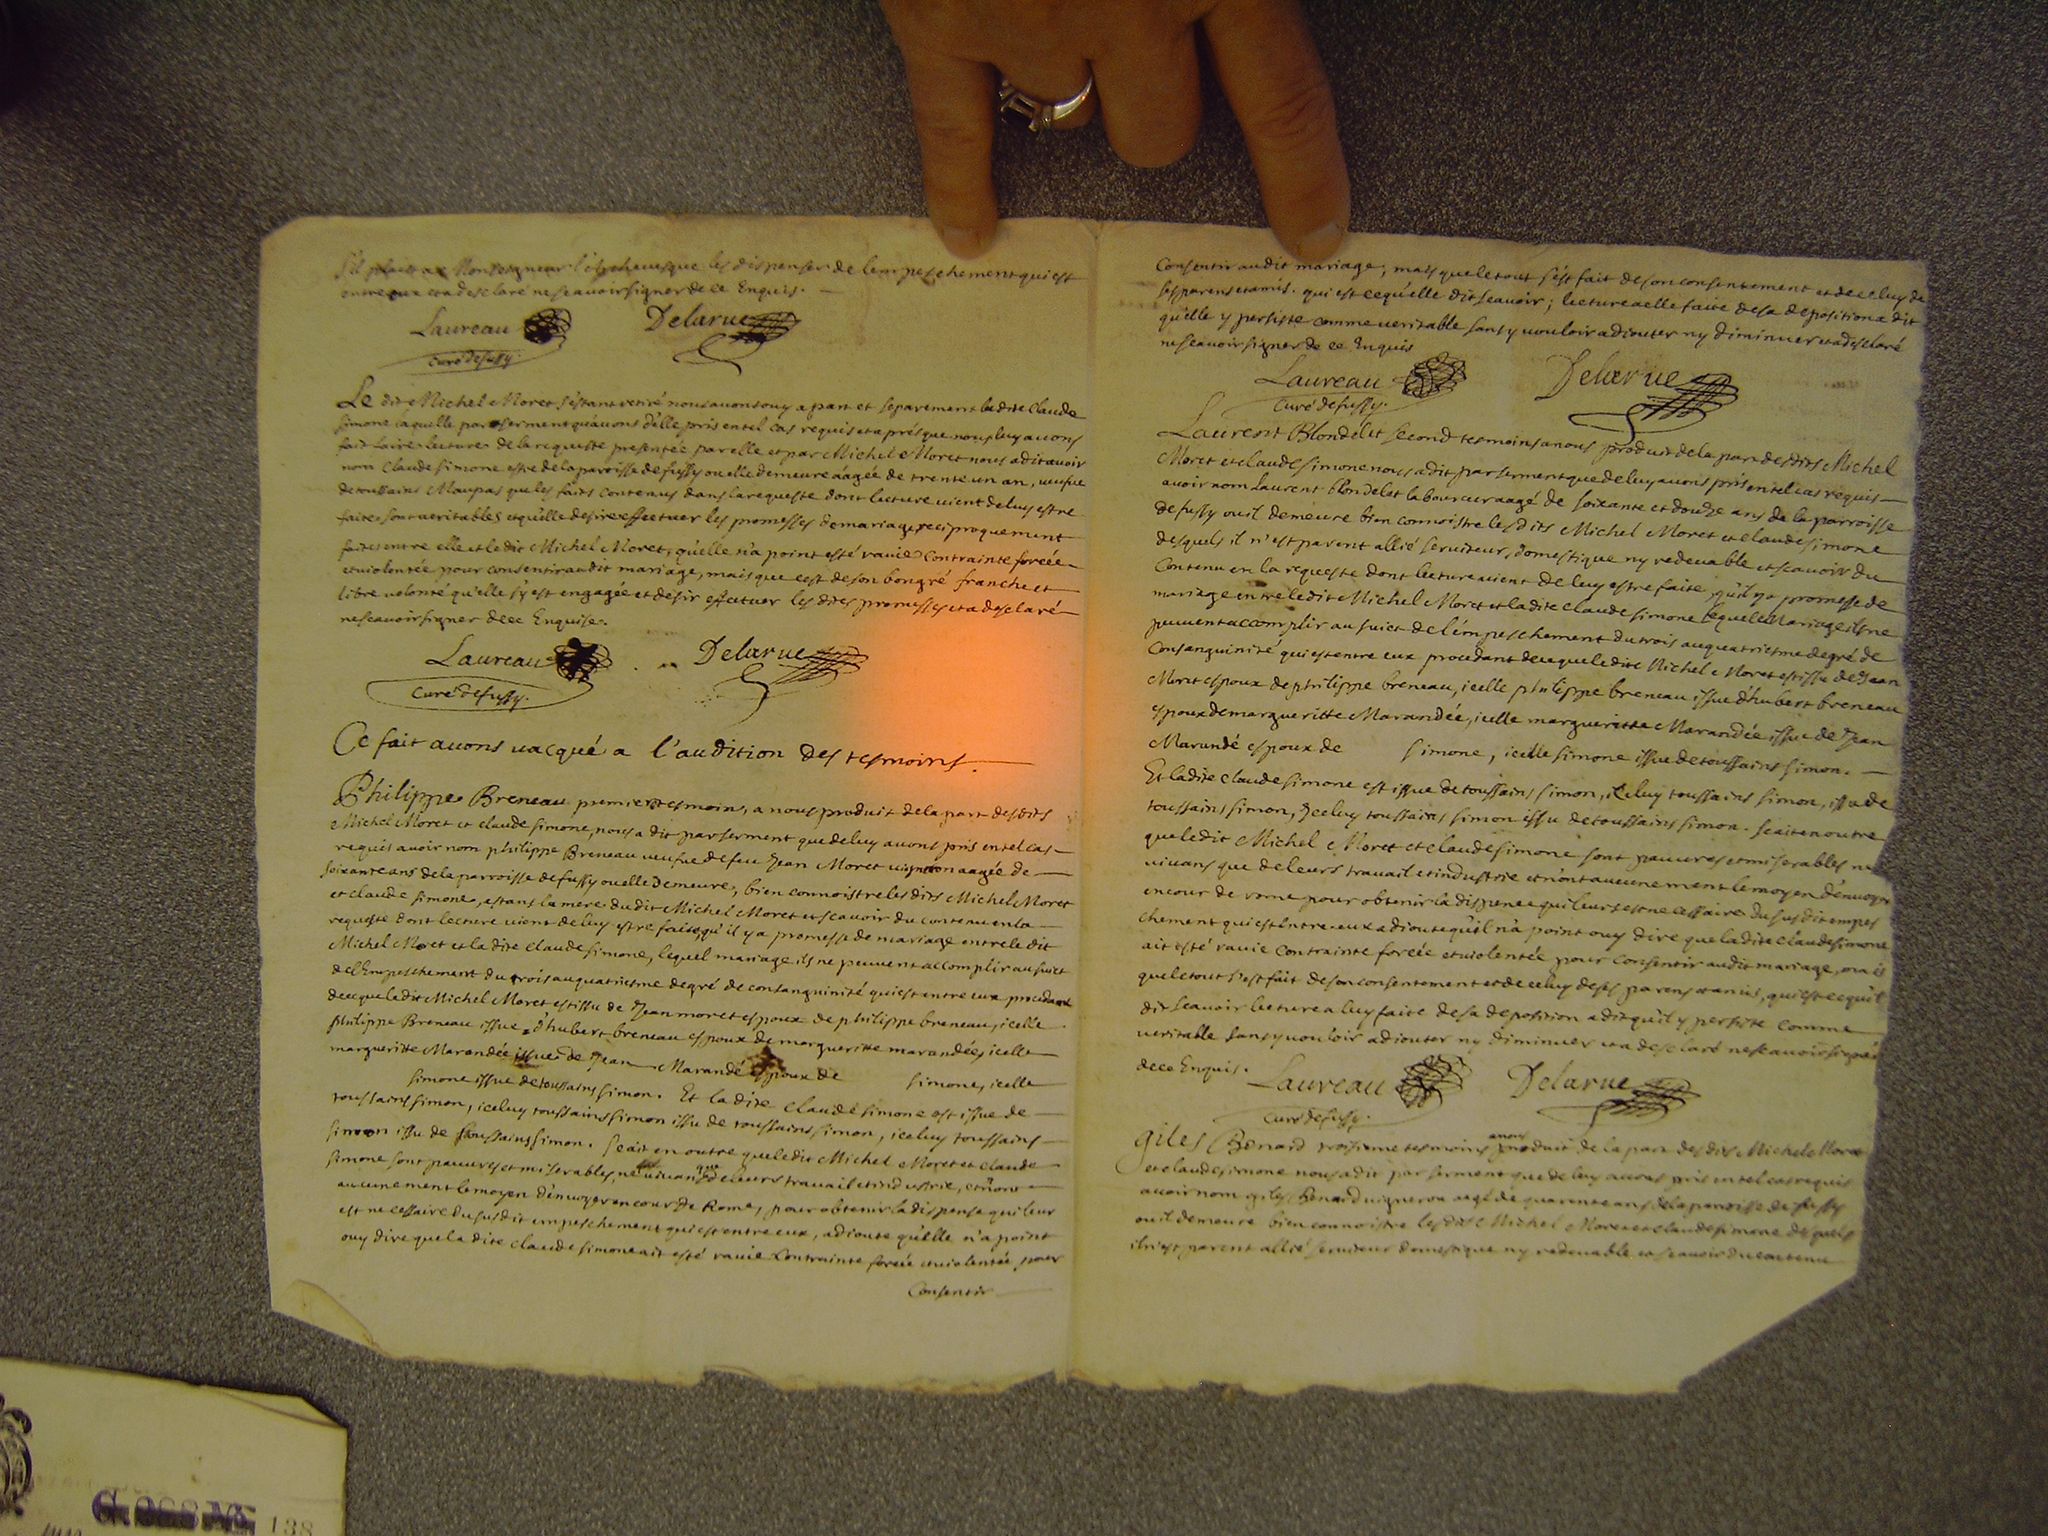 s'il plaist a Monseigneur l'Archevesque les dispenser de lempeschement qui est
entre eux et a desclaré ne scavoir signer de ce Enquis.
Laureau Delarue
curé de fussy.
Le dit Michel Moret s'estant retiré nous avons ouy a part et separement ladite Claude
simone laquelle par serment qu'avons d'elle pris en tel cas requis et aprés que nous luy avons
fait faire lecture de la requeste presentée par elle et par Michel Moret nous a dit avoir
nom Claude simone estre de la parroisse de fussy ou elle demeure aagée de trente un an, veufve
de toussains Maupas que les faits contenus dans la requeste dont lecture vient de luy estre
faite sont veritables et qu'elle desire effectuer les promesses de mariage reciproquement
faites entre elle et le dit Michel Moret, qu'elle n'a point esté ravie contrainte forcée
et violentée pour consentir au dit mariage, mais que c'est de son bon gré franche et
libre volonté qu'elle s'y est engagée et desir effectuer les dites promesses et a desclaré
ne scavoir signer de ce Enquise.
Laureau Delarue
curé de fussy.
Ce fait avons vacqué a l'audition des tesmoins.
Philippe Breneau premier tesmoins, a nous produit de la part desdits
Michel Moret et claude simone, nous a dit par serment que de luy avons pris en tel cas
requis avoir nom philippe Breneau veufve de feu Jean Moret vigneron aagée de
soixante ans de la parroisse de fussy ou elle demeure, bien connoistre les dits Michel Moret
et claude simone, estans la mere du dit Michel Moret et scavoir du contenu en la
requeste dont lecture vient de luy estre faite, qu'il y a promesse de mariage entre le dit
Michel Moret et la dite claude simone, lequel mariage ils ne peuvent accomplir au sujet
de l'Empeschement du trois au quatriesme degré de consanguinité qui est entre eux procedant
de ce que le dit Michel Moret est issu de Jean moret espoux de philippe breneau, icelle
philippe Breneau issue d'hubert breneau espoux de margueritte marandée, icelle
margueritte Marandée issue de Jean Marandé espoux de simone, icelle
simone issue de toussains simon. Et la dite claude simone est issue de
toussains simon, iceluy toussains simon issu de toussains simon, iceluy toussains
simon issu de toussains simon. scait en outre que le dit Michel Moret et claude
simone sont pauvres et miserables, ne vivans que de leurs travail et industrie, et n'ont
aucunement le moyen d'envoyer en cour de Rome, pour obtenir la dispense qui leur
est necessaire du susdit empeschement qui est entre eux, adioute qu'elle n'a point
ouy dire que la dite claude simone ait esté ravie contrainte forcée et violentée pour
Consentir
Consentir audit mariage, mais que le tout s'est fait de son consentement et de celuy de
ses parens et amis. qui est ce qu'elle dit scavoir; lecture a elle faite de sa deposition a dit
qu'elle y persiste comme veritable sans y vouloir adiouter ny diminuer et a desclaré
ne scavoir signer de ce Enquis
Laureau Delarue
curé de fussy.
Laurent Blondelet second tesmoins a nous produit de la part desdits Michel
Moret et claude simone nous a dit par serment que de luy avons pris en tel cas requis
avoir nom Laurent blondelet laboureur aagé de soixante et douze ans de la parroisse
de fussy ou il demeure bien connoistre les dits Michel Moret et claude simone
desquels il n'est parent allié serviteur, domestique ny redevable et scavoir du
Contenu en la requeste dont lecture vient de luy estre faite, qu'il y a promesse de
mariage entre le dit Michel Moret et la dite claude simone lequel Mariage ils ne
peuvent accomplir au suiet de l'empeschement du trois au quatriesme degré de
Consanguinité qui est entre eux procedant de ce que le dit Michel Moret est issu de Jean
Moret espoux de philippe breneau, icelle philippe breneau issue d'hubert breneau
espoux de margueritte Marandée, icelle margueritte Marandée issue de Jean
Marandé espoux de simone, icelle simone issue de toussains simon.
Et la dite claude simone est issue de toussains simon, iceluy toussains simon, issu de
toussains simon, Iceluy toussains simon issu de toussains simon. scait en outre
que le dit Michel Moret et claude simone sont pauvres et miserables ne
vivans que de leurs travail et industrie et n'ont aucunement le moyen d'envoyer
en cour de rome pour obtenir la dispence qui leurs est necessaire du susdit empes
chement qui est entre eux adioute qu'il n'a point ouy dire que la dite claude simone
ait esté ravie contrainte forcée et violentée pour consentir audit mariage, mais
que le tout s'est fait de son consentement et de celuy de ses parens et amis, qui est ce qu'il
dit scavoir lecture a luy faite de sa deposition a dit qu'il y persiste comme
veritable sans y vouloir adiouter ny diminuer et a desclaré ne scavoir signer
de ce Enquis.
Laureau Delarue
curé de fussy.
Giles Benard troisieme tesmoins a nous produit de la part des dits Michel Moret
et claude simone nous a dit par serment que de luy avons pris en tel cas requis
avoir nom giles Benard vigneron aagé de quarente ans de la parroisse de fussy
ou il demeure bien connoistre les dits Michel Moret et claude simone desquels
il n'est parent allié serviteur domestique ny redevable et scavoir du contenu
138